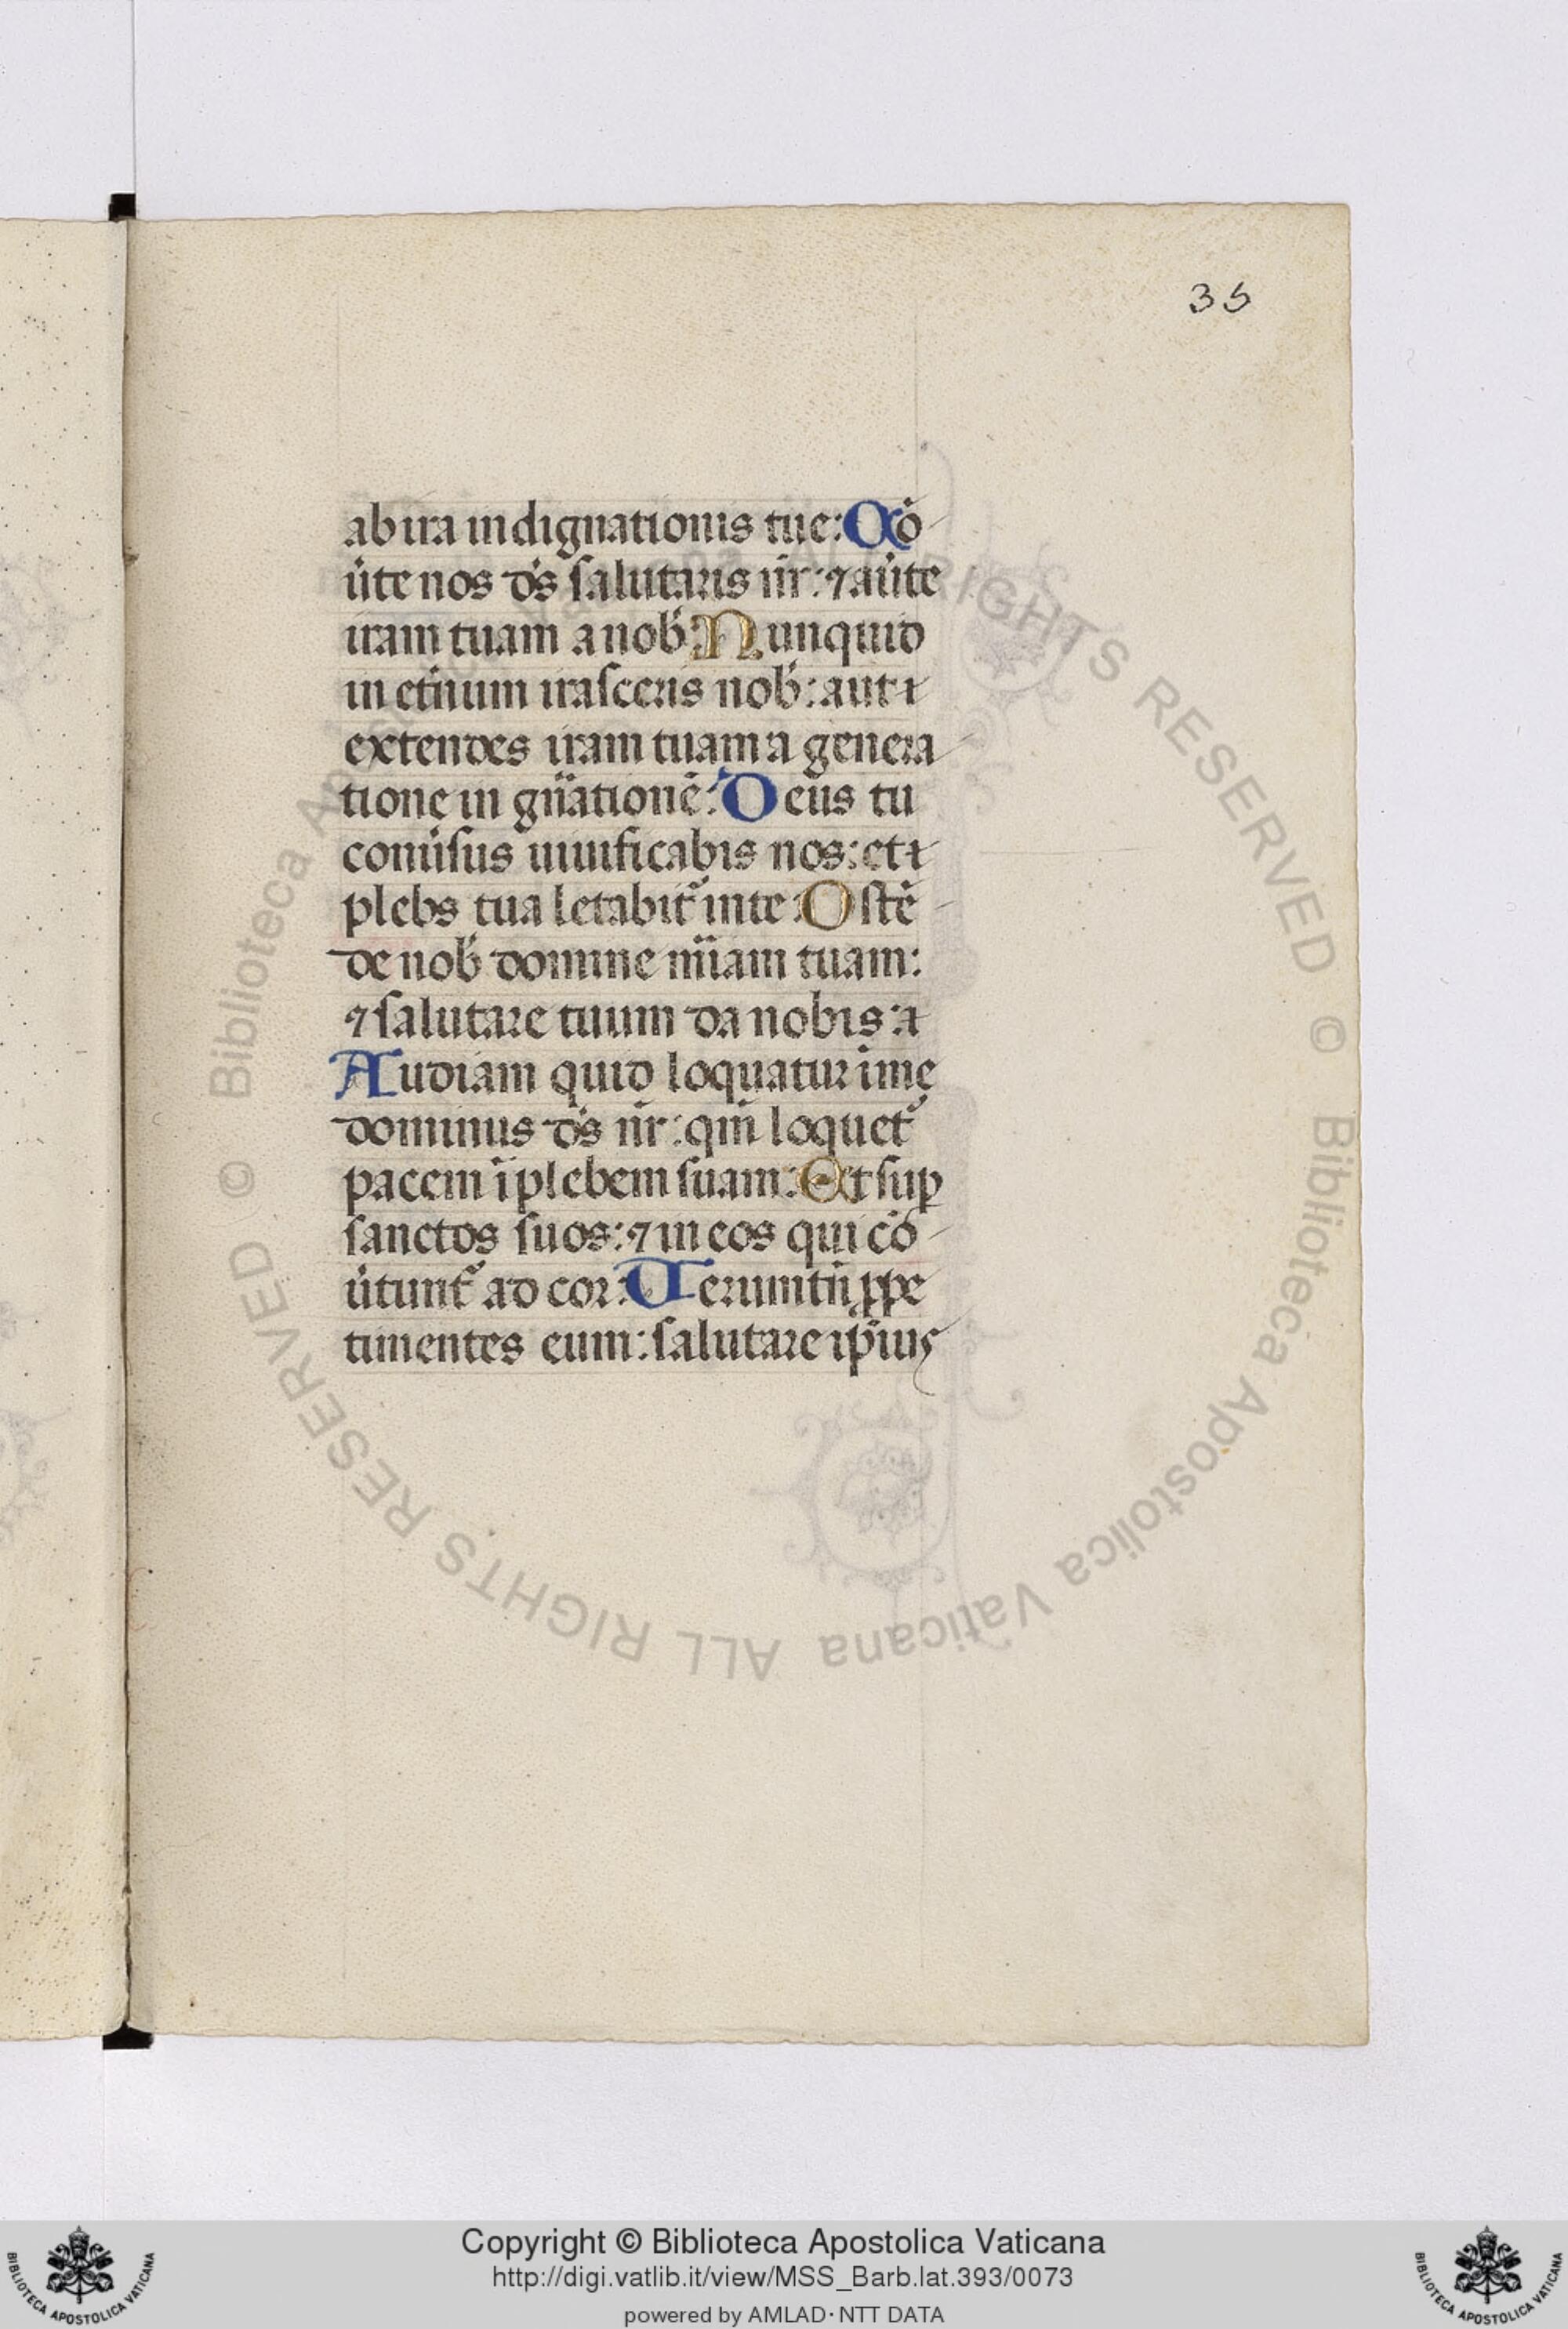 35
ab ira indignationis tue: Cō
u̇te nos ds̄ ſalutaris nr̄: ⁊ au̇te
iram tuam a nob̄: Nunquid
in etn̄um iraſceris nob̄: aut
extendes iram tuam a genera
tione in gn̄ationē: Deus tu
conu̇ſus uiuificabis nos: et
plebs tua letabit᷑ in te: Oſtē
de nob̄ domine mīam tuam:
⁊ ſalutare tuum da nobis:
Audiam quid loquatur ī me
dominus ds̄ nr̄: qm̄ loquet᷑
pacem ī plebem ſuam: Et ſuꝑ
ſanctos ſuos: ⁊ in eos qui cō
u̇tunt᷑ ad cor: Uerumtn̄ ꝓpe
timentes eum: ſalutare ip̄ius
© Biblioteca Apostolica Vaticana ALL RIGHTS RESERVED
© Biblioteca Apostolica Vaticana ALL RIGHTS RESERVED
BIBLIOTECA APOSTOLICA VATICANA
Copyright © Biblioteca Apostolica Vaticana
http://digi.vatlib.it/view/MSS_Barb.lat.393/0073
powered by AMLAD·NTT DATA
BIBLIOTECA APOSTOLICA VATICANA